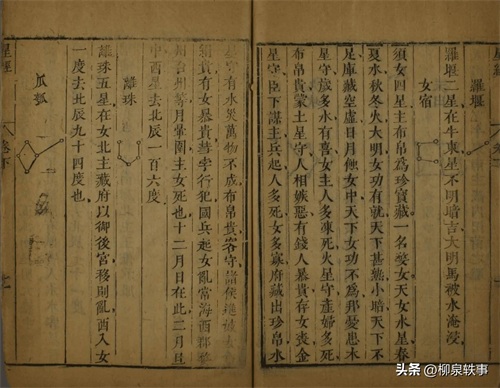 星經
羅堰
羅堰二星在牛東星不明暗吉大明馬被水淹浸
女宿
須女四星主布帛為珍寶藏一名婺女天女水星春
夏水秋冬火大明女功有就天下甚熟小暗天下不
足庫藏空虛日月傾女中天下女功不為邦憂患木
星守歲多水有喜女主人多凍死火星守產婦多死
布帛貴蒙土星守人相嫉惡有錢人暴貴存女喪金
星守臣下謀主兵起人多死女多寡府藏出珍帛水
星守有水災萬物不成布帛貴客守諸侯
須貴有女暴貴彗孛行犯國兵起女亂常海西郡
州台州等月暈闈主女死也十二月日在此二月旦
中酉星去北辰一百六度
離珠
離珠五星在女北主藏府以御後宮移則亂西入女
一度去北辰九十四度也
瓜瓠
星經
卷下
七
头条 @柳泉轶事